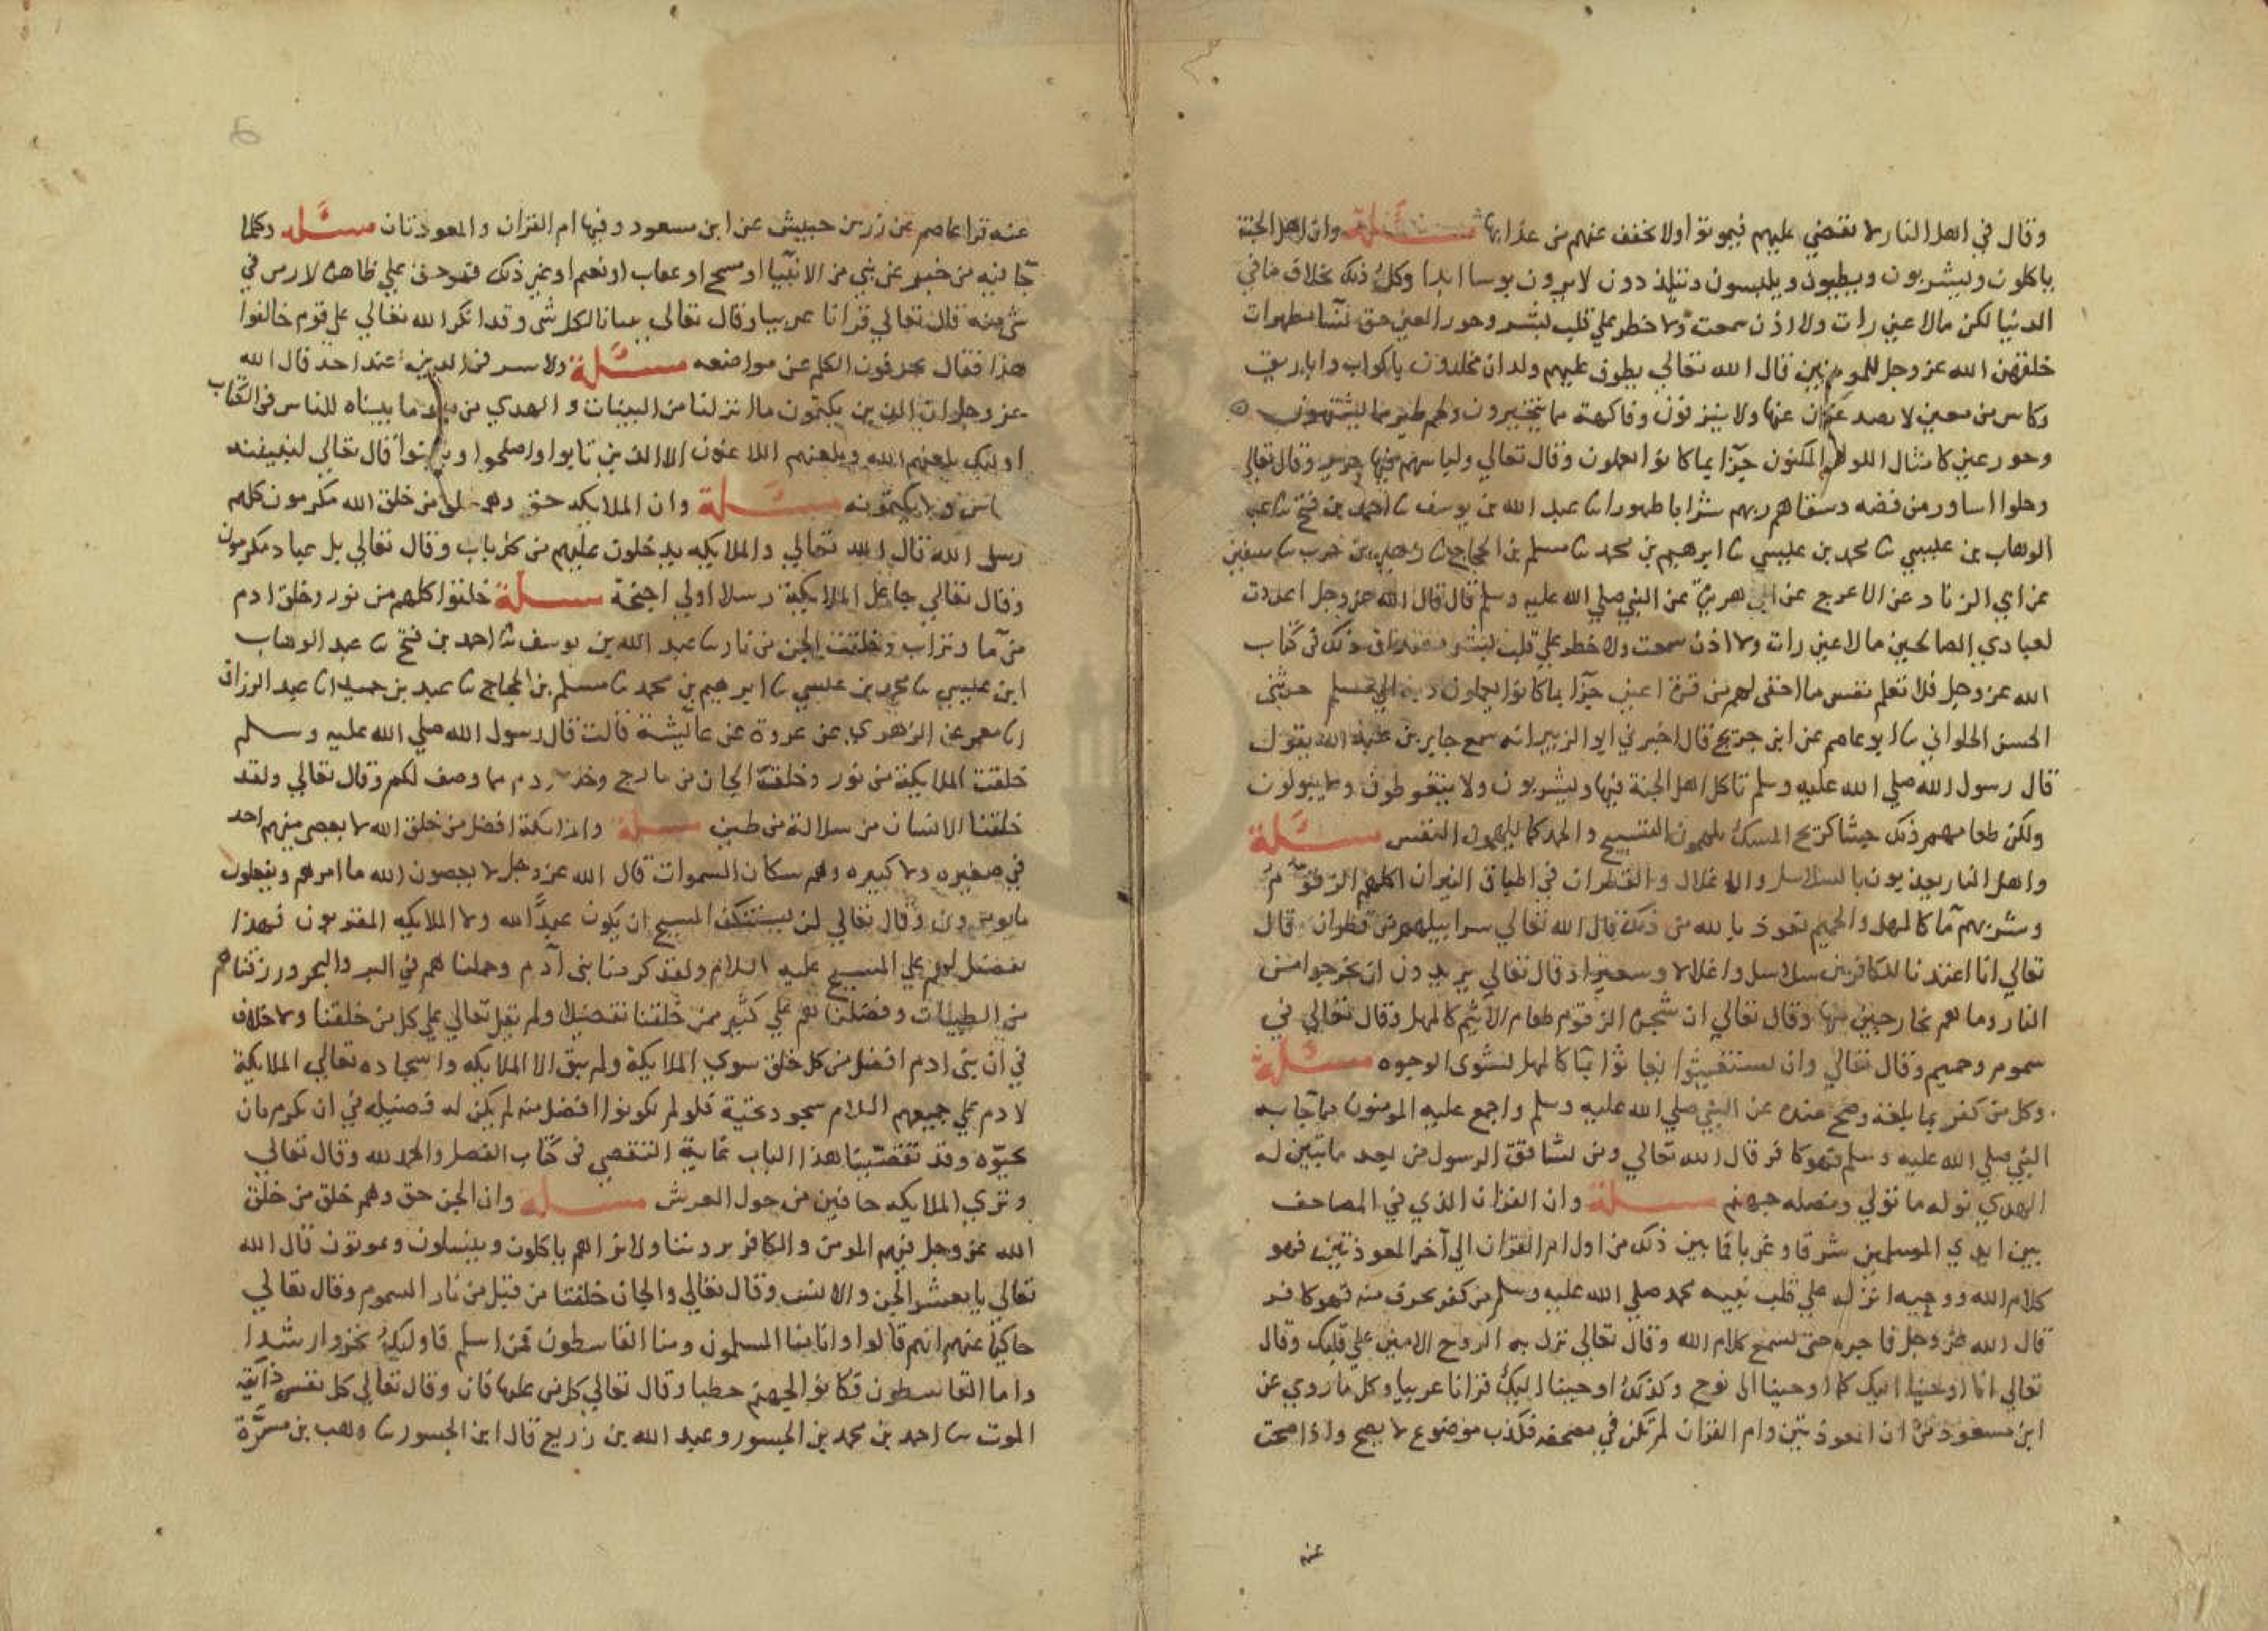 وقال في اهل النار لا يقضي عليهم فيموتوا ولا يخفف عنهم من عذابها مسئلة وان اهل الجنة
ياكلون ويشربون ويطيبون ويلبسون ويتلذذون لا يرون بوسا ابدا وكل ذلك بخلاف ما في
الدنيا لكن ما لا عين رات ولا اذن سمعت ولا خطر علي قلب بشر وحور العين حق نسا مطهرات
خلقهن الله عز وجل للمومنين قال الله تعالي يطوف عليهم ولدان مخلدون باكواب واباريق
وكاس من معين لا يصدعون عنها ولا ينزفون وفاكهة مما يتخيرون ولحم طير مما يشتهون
وحور عين كامثال اللولو المكنون جزآ بما كانوا يعملون وقال تعالي ولباسهم فيها حرير وقال تعالي
وحلوا اساور من فضه وسقاهم ربهم شرابا طهورا نا عبد الله بن يوسف نا احمد بن فتح نا عبد
الوهاب بن عيسي نا محمد بن عيسي نا ابرهيم بن محمد نا مسلم بن الحجاج نا زهير بن حرب نا سفين
عن ابي الزناد عن الاعرج عن ابي هريرة عن النبي صلي الله عليه وسلم قال قال الله عز وجل اعددت
لعبادي الصالحين ما لا عين رات ولا اذن سمعت ولا خطر علي قلب بشر مصداق ذلك في كتاب
الله عز وجل فلا تعلم نفس ما اخفي لهم من قرة اعين جزآ بما كانوا يعملون وبه الي مسلم حدثني
الحسن الحلواني نا ابو عاصم عن ابن جريج قال اخبرني ابو الزبير انه سمع جابر بن عبد الله يقول
قال رسول الله صلي الله عليه وسلم ياكل اهل الجنة فيها ويشربون ولا يتغوطون ولا يبولون
ولكن طعامهم ذلك جشا كريح المسك يلهمون التسبيح والحمد كما يلهمون النفس مسئلة
واهل النار يعذبون بالسلاسل والاغلال والقطران في اطباق النيران اكلهم الزقوم
وشربهم مآ كالمهل والحميم نعوذ بالله من ذلك قال الله تعالي سرابيلهم من قطران وقال
تعالي انا اعتدنا للكافرين سلاسل واغلالا وسعيرا وقال تعالي يريدون ان يخرجوا من
النار وما هم بخارجين منها وقال تعالي ان شجرة الزقوم طعام الاثيم كالمهل وقال تعالي في
سموم وحميم وقال تعالي وان يستغيثوا يغاثوا بمآ كالمهل يشوي الوجوه مسئلة
وكل من كفر بما بلغه وصح عنده عن النبي صلي الله عليه وسلم واجمع عليه المومنون مما جا به
النبي صلي الله عليه وسلم فهو كافر قال الله تعالي ومن يشاقق الرسول من بعد ما تبين له
الهدي نوله ما تولي ونصله جهنم مسئلة وان القران الذي في المصاحف
بين ايدي المسلمين شرقا وغربا فما بين ذلك من اول ام القران الي آخر المعوذتين فهو
كلام الله ووحيه انزله علي قلب نبيه محمد صلي الله عليه وسلم من كفر بحرف منه فهو كافر
قال الله عز وجل فاجره حتي يسمع كلام الله وقال تعالي نزل به الروح الامين علي قلبك وقال
تعالي انا اوحينا اليك كما اوحينا الي نوح وكذلك اوحينا اليك قرانا عربيا وكل ما روي عن
ابن مسعود من ان المعوذتين وام القران لم تكن في مصحفه فكذب موضوع لا يصح وانما صحت
عنه
عنه قرا عاصم عن زر بن حبيش عن ابن مسعود وفيها ام القران والمعوذتان مسئله وكلما
جآ فيه من خبر عن نبي من الانبيا او مسح او عذاب او نعيم او غير ذلك فهو حق علي ظاهره لا رمز في
شي منه قال تعالي قرانا عربيا وقال تعالي بيانا لكل شي وقد انكر الله تعالي علي قوم خالفوا
هذا فقال يحرفون الكلم عن مواضعه مسئلة ولا سر في الدين عند احد قال الله
عز وجل ان الذين يكتمون ما انزلنا من البينات والهدي من بعد ما بيناه للناس في الكتاب
اوليك يلعنهم الله ويلعنهم اللاعنون الا الذين تابوا واصلحوا وبينوا قال تعالي لتبيننه
للناس ولا يكتمونه مسئلة وان الملايكه حق وهم خلق من خلق الله مكرمون كلهم
رسل الله قال الله تعالي والملايكه يدخلون عليهم من كل باب وقال تعالي بل عباد مكرمون
وقال تعالي جاعل الملايكة رسلا اولي اجنحة مسئلة خلقوا كلهم من نور وخلق ادم
من مآ وتراب وخلقت الجن من نار نا عبد الله بن يوسف نا احمد بن فتح نا عبد الوهاب
ابن عيسي نا محمد بن عيسي نا ابرهيم بن محمد نا مسلم بن الحجاج نا عبد بن حميد انا عبد الرزاق
انا معمر عن الزهري عن عروة عن عائشة قالت قال رسول الله صلي الله عليه وسلم
خلقت الملايكة من نور وخلق الجان من مارج وخلق ادم مما وصف لكم وقال تعالي ولقد
خلقنا الانسان من سلالة من طين مسئلة والملايكة افضل من خلق الله لا يعصي منهم احد
في صغيره ولا كبيره وهم سكان السموات قال الله عز وجل لا يعصون الله ما امرهم ويفعلون
ما يومرون وقال تعالي لن يستنكف المسيح ان يكون عبدا لله ولا الملايكه المقربون فهذا
تفضيل لهم علي المسيح عليه السلام ولقد كرمنا بني آدم وحملناهم في البر والبحر ورزقناهم
من الطيبات وفضلناهم علي كثير ممن خلقنا تفضيلا ولم يقل تعالي علي كل من خلقنا ولا خلاف
في ان بني ادم افضل من كل خلق سوي الملايكة ولم يبق الا الملايكه واسجاده تعالي الملايكة
لادم علي جميعهم السلام سجود تحية فلو لم يكونوا افضل منه لم يكن له فضيله في ان يكرم بان
يحيوه وقد تقصينا هذا الباب غاية التقصي في كتاب الفصل والحمد لله وقال تعالي
وتري الملايكه حافين من حول العرش مسئلة وان الجن حق وهم خلق من خلق
الله عز وجل فيهم المومن والكافر يروننا ولا نراهم ياكلون وينسلون ويموتون قال الله
تعالي يا معشر الجن والانس وقال تعالي والجان خلقنا من قبل من نار السموم وقال تعالي
حاكيا عنهم انهم قالوا وانا منا المسلمون ومنا القاسطون فمن اسلم فاوليك تحروا رشدا
واما القاسطون فكانوا لجهنم حطبا وقال تعالي كل من عليها فان وقال تعالي كل نفس ذائقه
الموت نا احمد بن محمد بن الجسور وعبد الله بن ربيع قال ابن الجسور نا وهب بن مسرة